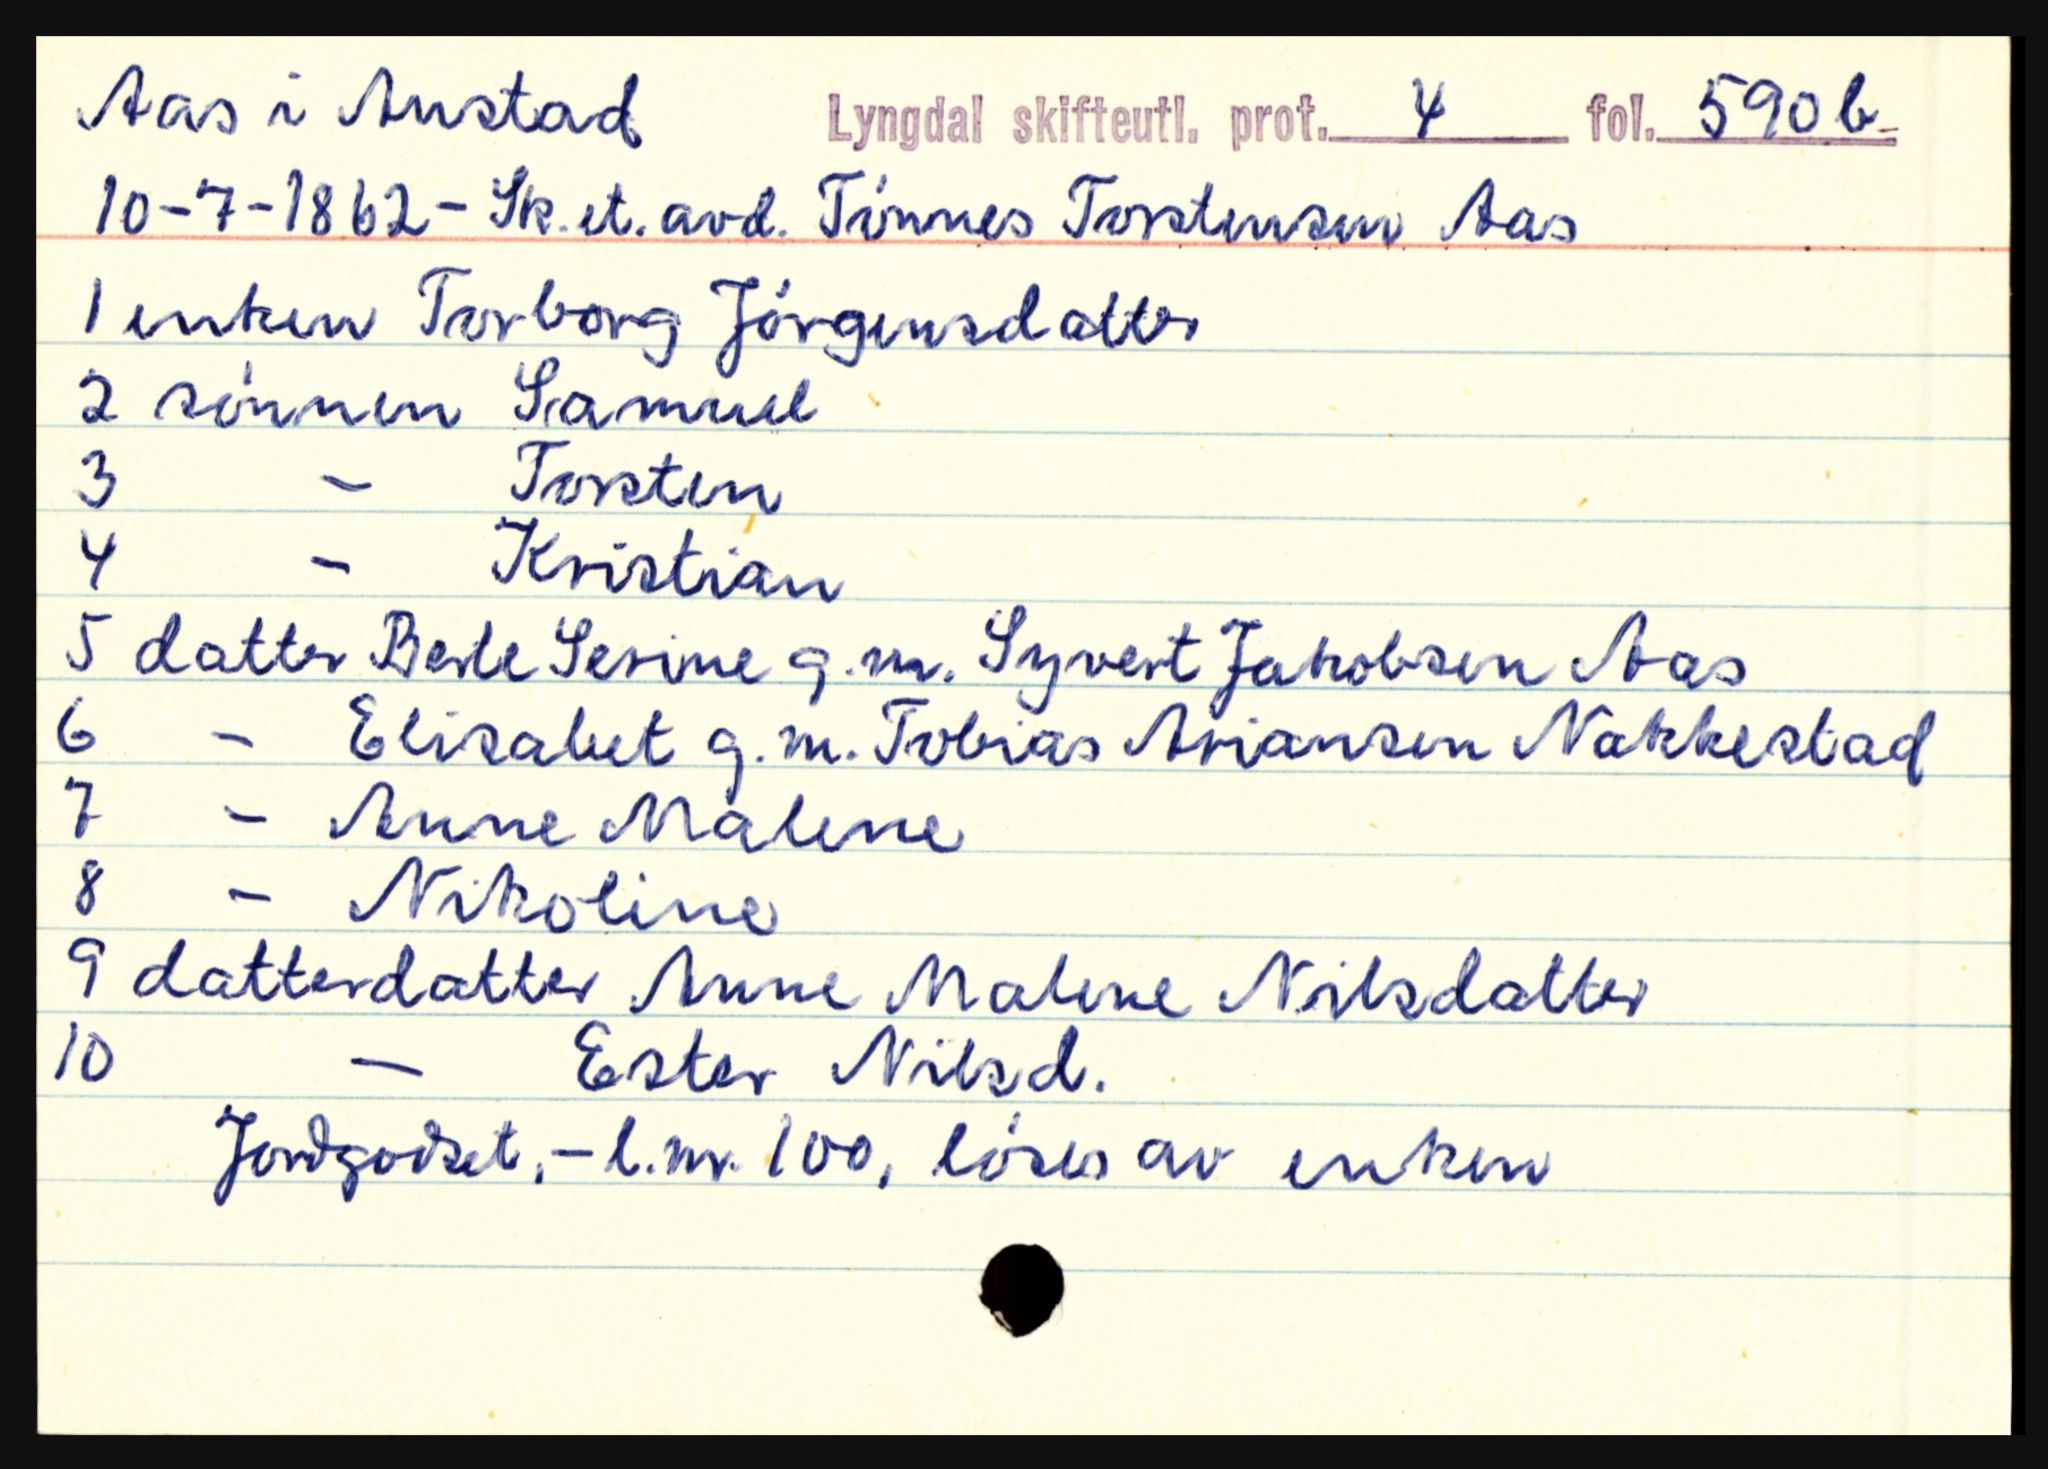 Aas i Austad Lyngdal skifteutl. prot. 4 fol. 590b
10-7-1862 - Sk. et. avd. Tónnes Torstensen Aas
1 enken Torborg Jórgensdatter
2 sónnen Samuel
3 - Torsten
4 - Kristian
5 datter Berte Serine g.m. Syvert Jakobsen Aas
6 - Elisabet g.m. Tobias Ariansen Nakkestad
7 - Anne Malene
8 - Nikoline
9 datterdatter Anne Malene Nilsdatter
10 - Ester Nilsd.
Jordgodset, - l.nr. 100, lóses av enken